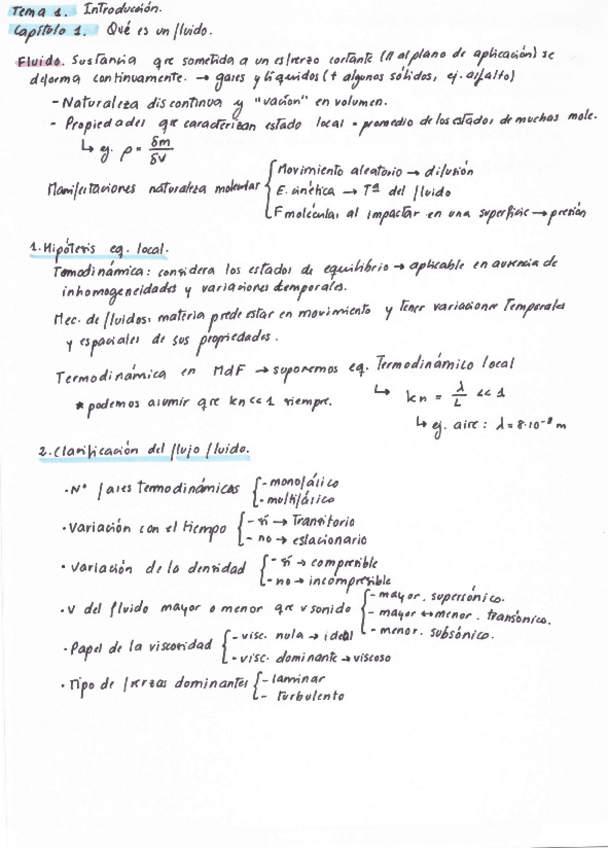 Tema 1. Introducción.
Capítulo 1. Qué es un fluido.
Fluido. Sustancia que sometida a un esfuerzo cortante (// al plano de aplicación) se
deforma continuamente. → gases y líquidos (+ algunos sólidos, ej. asfalto)
- Naturaleza discontinua y "vacíon" en volumen.
- Propiedades que caracterizan estado local = promedio de los estados de muchas mole.
↳ eg. ρ = δm/δV
Manifestaciones naturaleza molecular { Movimiento aleatorio → difusión
E. cinética → Tª del fluido
F molecular al impactar en una superficie → presión
1. Hipótesis eq. local.
Tomodinámica: considera los estados de equilibrio → aplicable en ausencia de
inhomogeneidades y variaciones temporales.
Mec. de fluidos: materia puede estar en movimiento y tener variaciones Temporales
y espaciales de sus propiedades.
Termodinámica en MdF → suponemos eq. Termodinámico local
↳ kn = λ/L << 1
* podemos asumir que kn << 1 siempre.
↳ ej. aire: λ = 8·10⁻⁸ m
2. Clasificación del flujo fluido.
· Nº fases Termodinámicas { - monofásico
- multifásico
· Variación con el tiempo { - sí → Transitorio
- no → estacionario
· Variación de la densidad { - sí → compresible
- no → incompresible
· v del fluido mayor o menor que v sonido { - mayor. supersónico.
- mayor ↔ menor. transónico.
- menor. subsónico.
· Papel de la viscosidad { - visc. nula → ideal
- visc. dominante → viscoso
· Tipo de fuerzas dominantes { - laminar
- turbulento